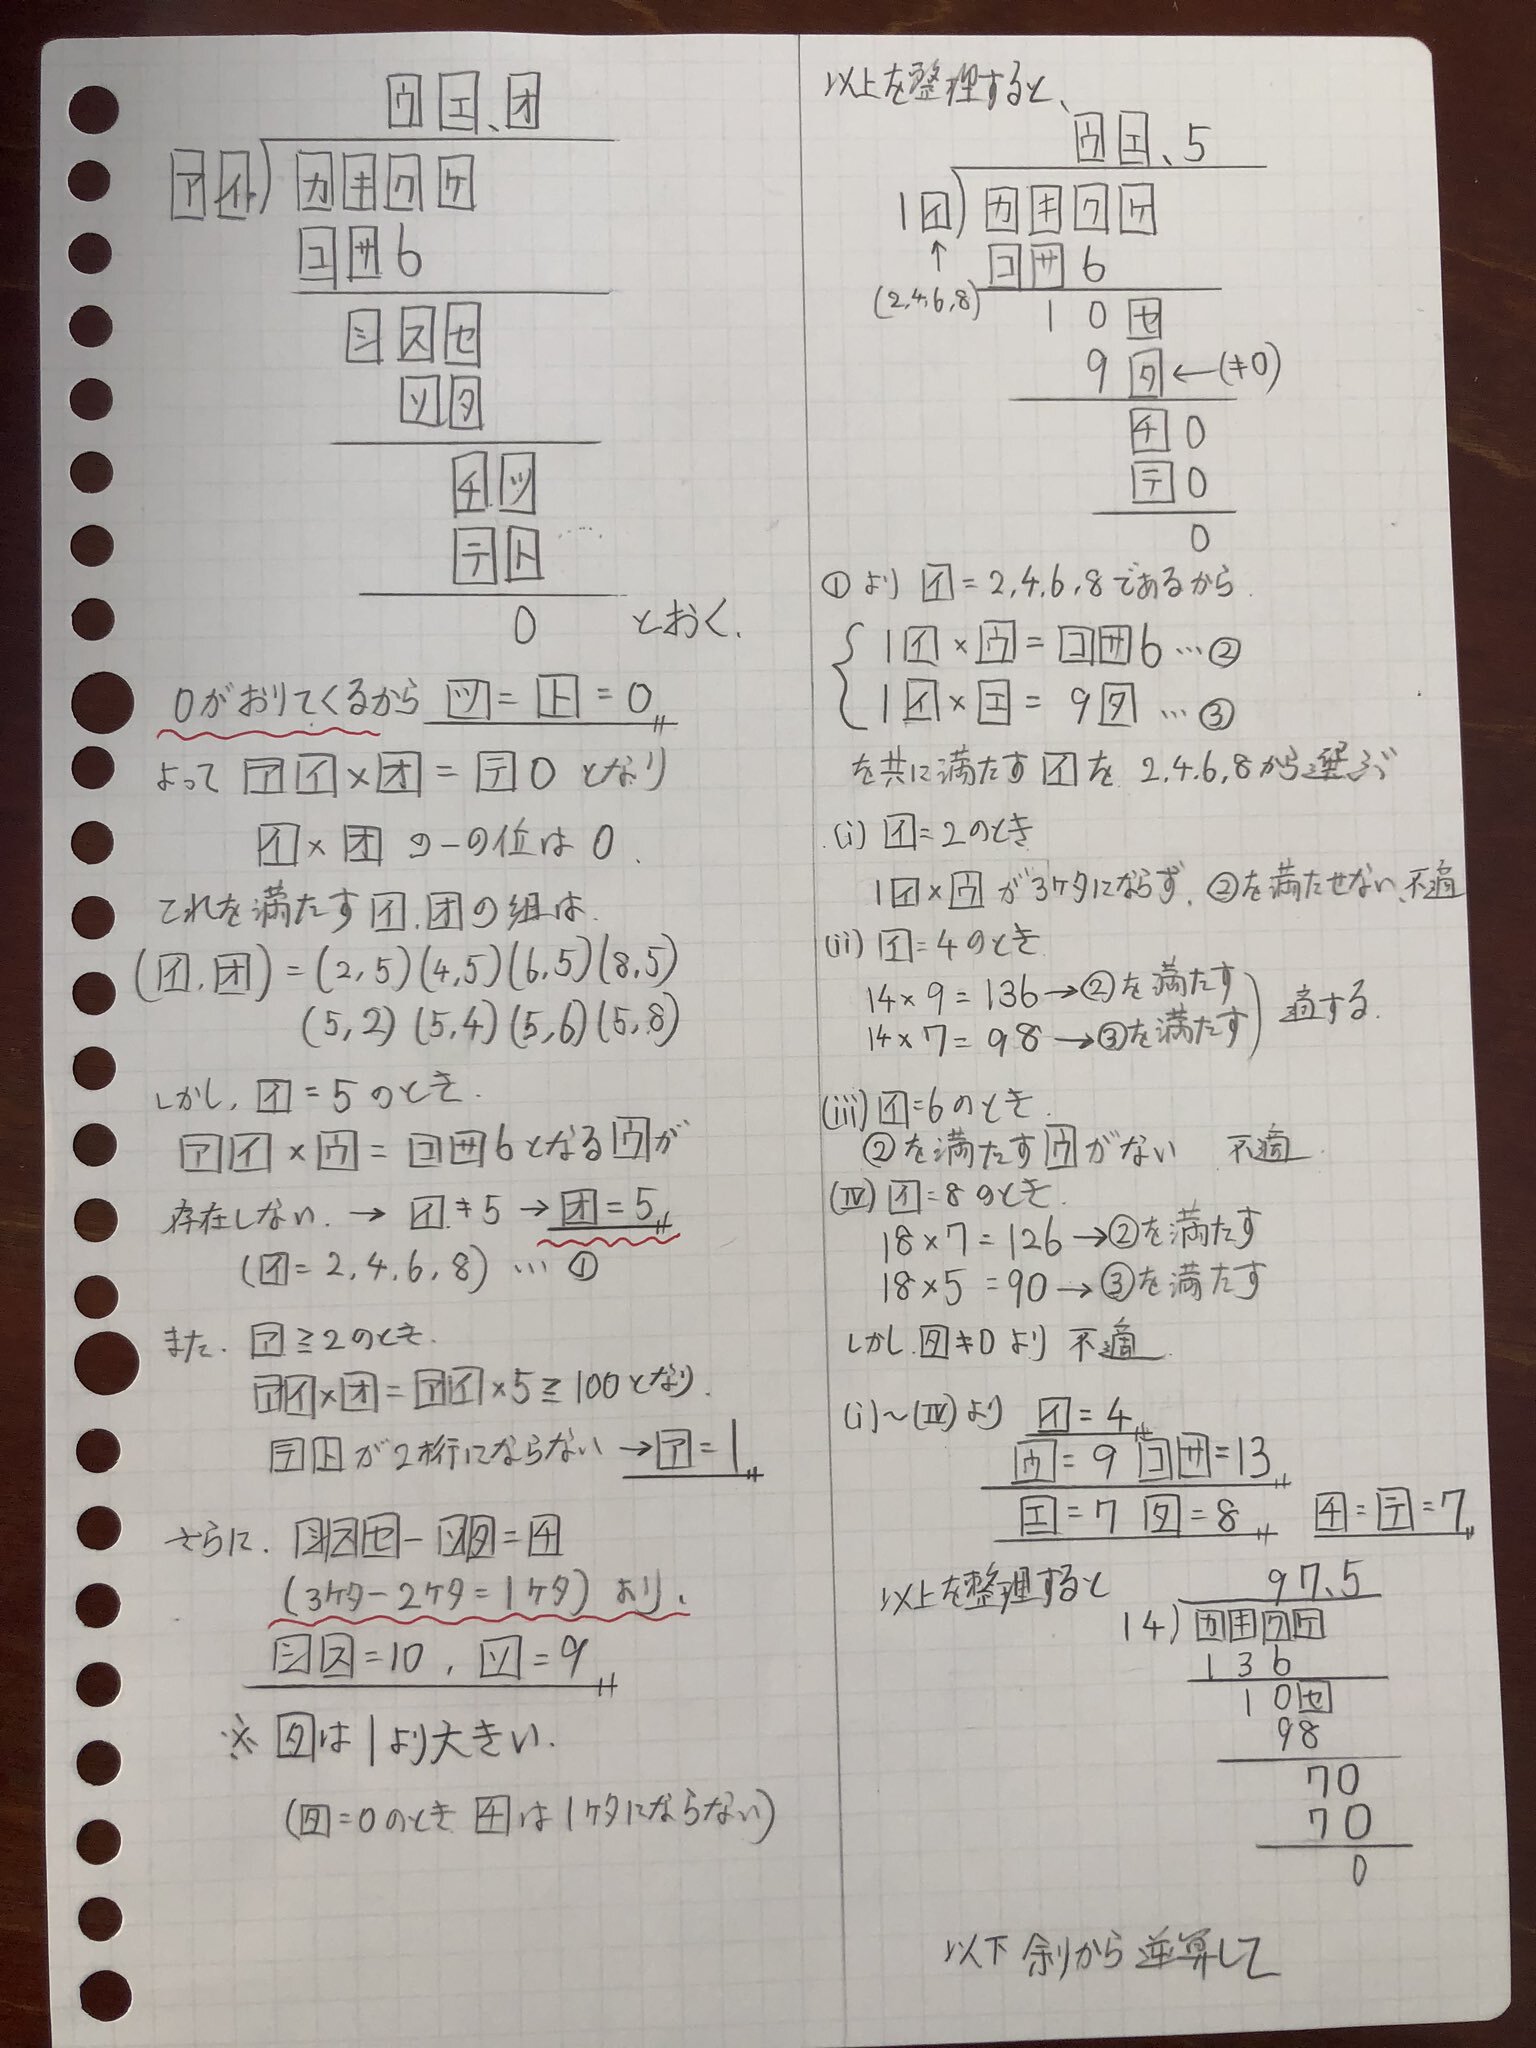 ウエ.オ
アイ)カキクケ
コサ6
シスセ
ソタ
チツ
テト
0 とおく.
0がおりてくるから ツ=ト=0
よって アイ×オ=テ0 となり
イ×オ の一の位は0.
これを満たすイ,オの組は.
(イ,オ)=(2,5)(4,5)(6,5)(8,5)
(5,2)(5,4)(5,6)(5,8)
しかし,イ=5のとき.
アイ×ウ=コサ6となるウが
存在しない.→ イ≠5→オ=5
(イ=2,4,6,8)…①
また.ア≧2のとき.
アイ×オ=アイ×5≧100となり.
テトが2桁にならない→ア=1
さらに.シスセ-ソタ=チ
(3ケタ-2ケタ=1ケタ)より.
シス=10,ソ=9
※タは1より大きい.
(タ=0のときチは1ケタにならない)
以上を整理すると、
ウエ.5
1イ)カキクケ
↑
(2,4,6,8)
コサ6
10セ
9タ←(≠0)
チ0
テ0
0
①よりイ=2,4,6,8であるから.
1イ×ウ=コサ6…②
1イ×エ=9タ…③
を共に満たすイを2,4,6,8から選ぶ
(i)イ=2のとき
1イ×ウが3ケタにならず.②を満たせない、不適
(ii)イ=4のとき
14×9=136→②を満たす
14×7=98→③を満たす
適する.
(iii)イ=6のとき.
②を満たすウがない 不適
(IV)イ=8のとき.
18×7=126→②を満たす
18×5=90→③を満たす
しかしタ≠0より 不適
(i)~(IV)より イ=4
ウ=9 コサ=13
エ=7 タ=8 チ=テ=7
以上を整理すると
97.5
14)カキクケ
136
10セ
98
70
70
0
以下余りから逆算して